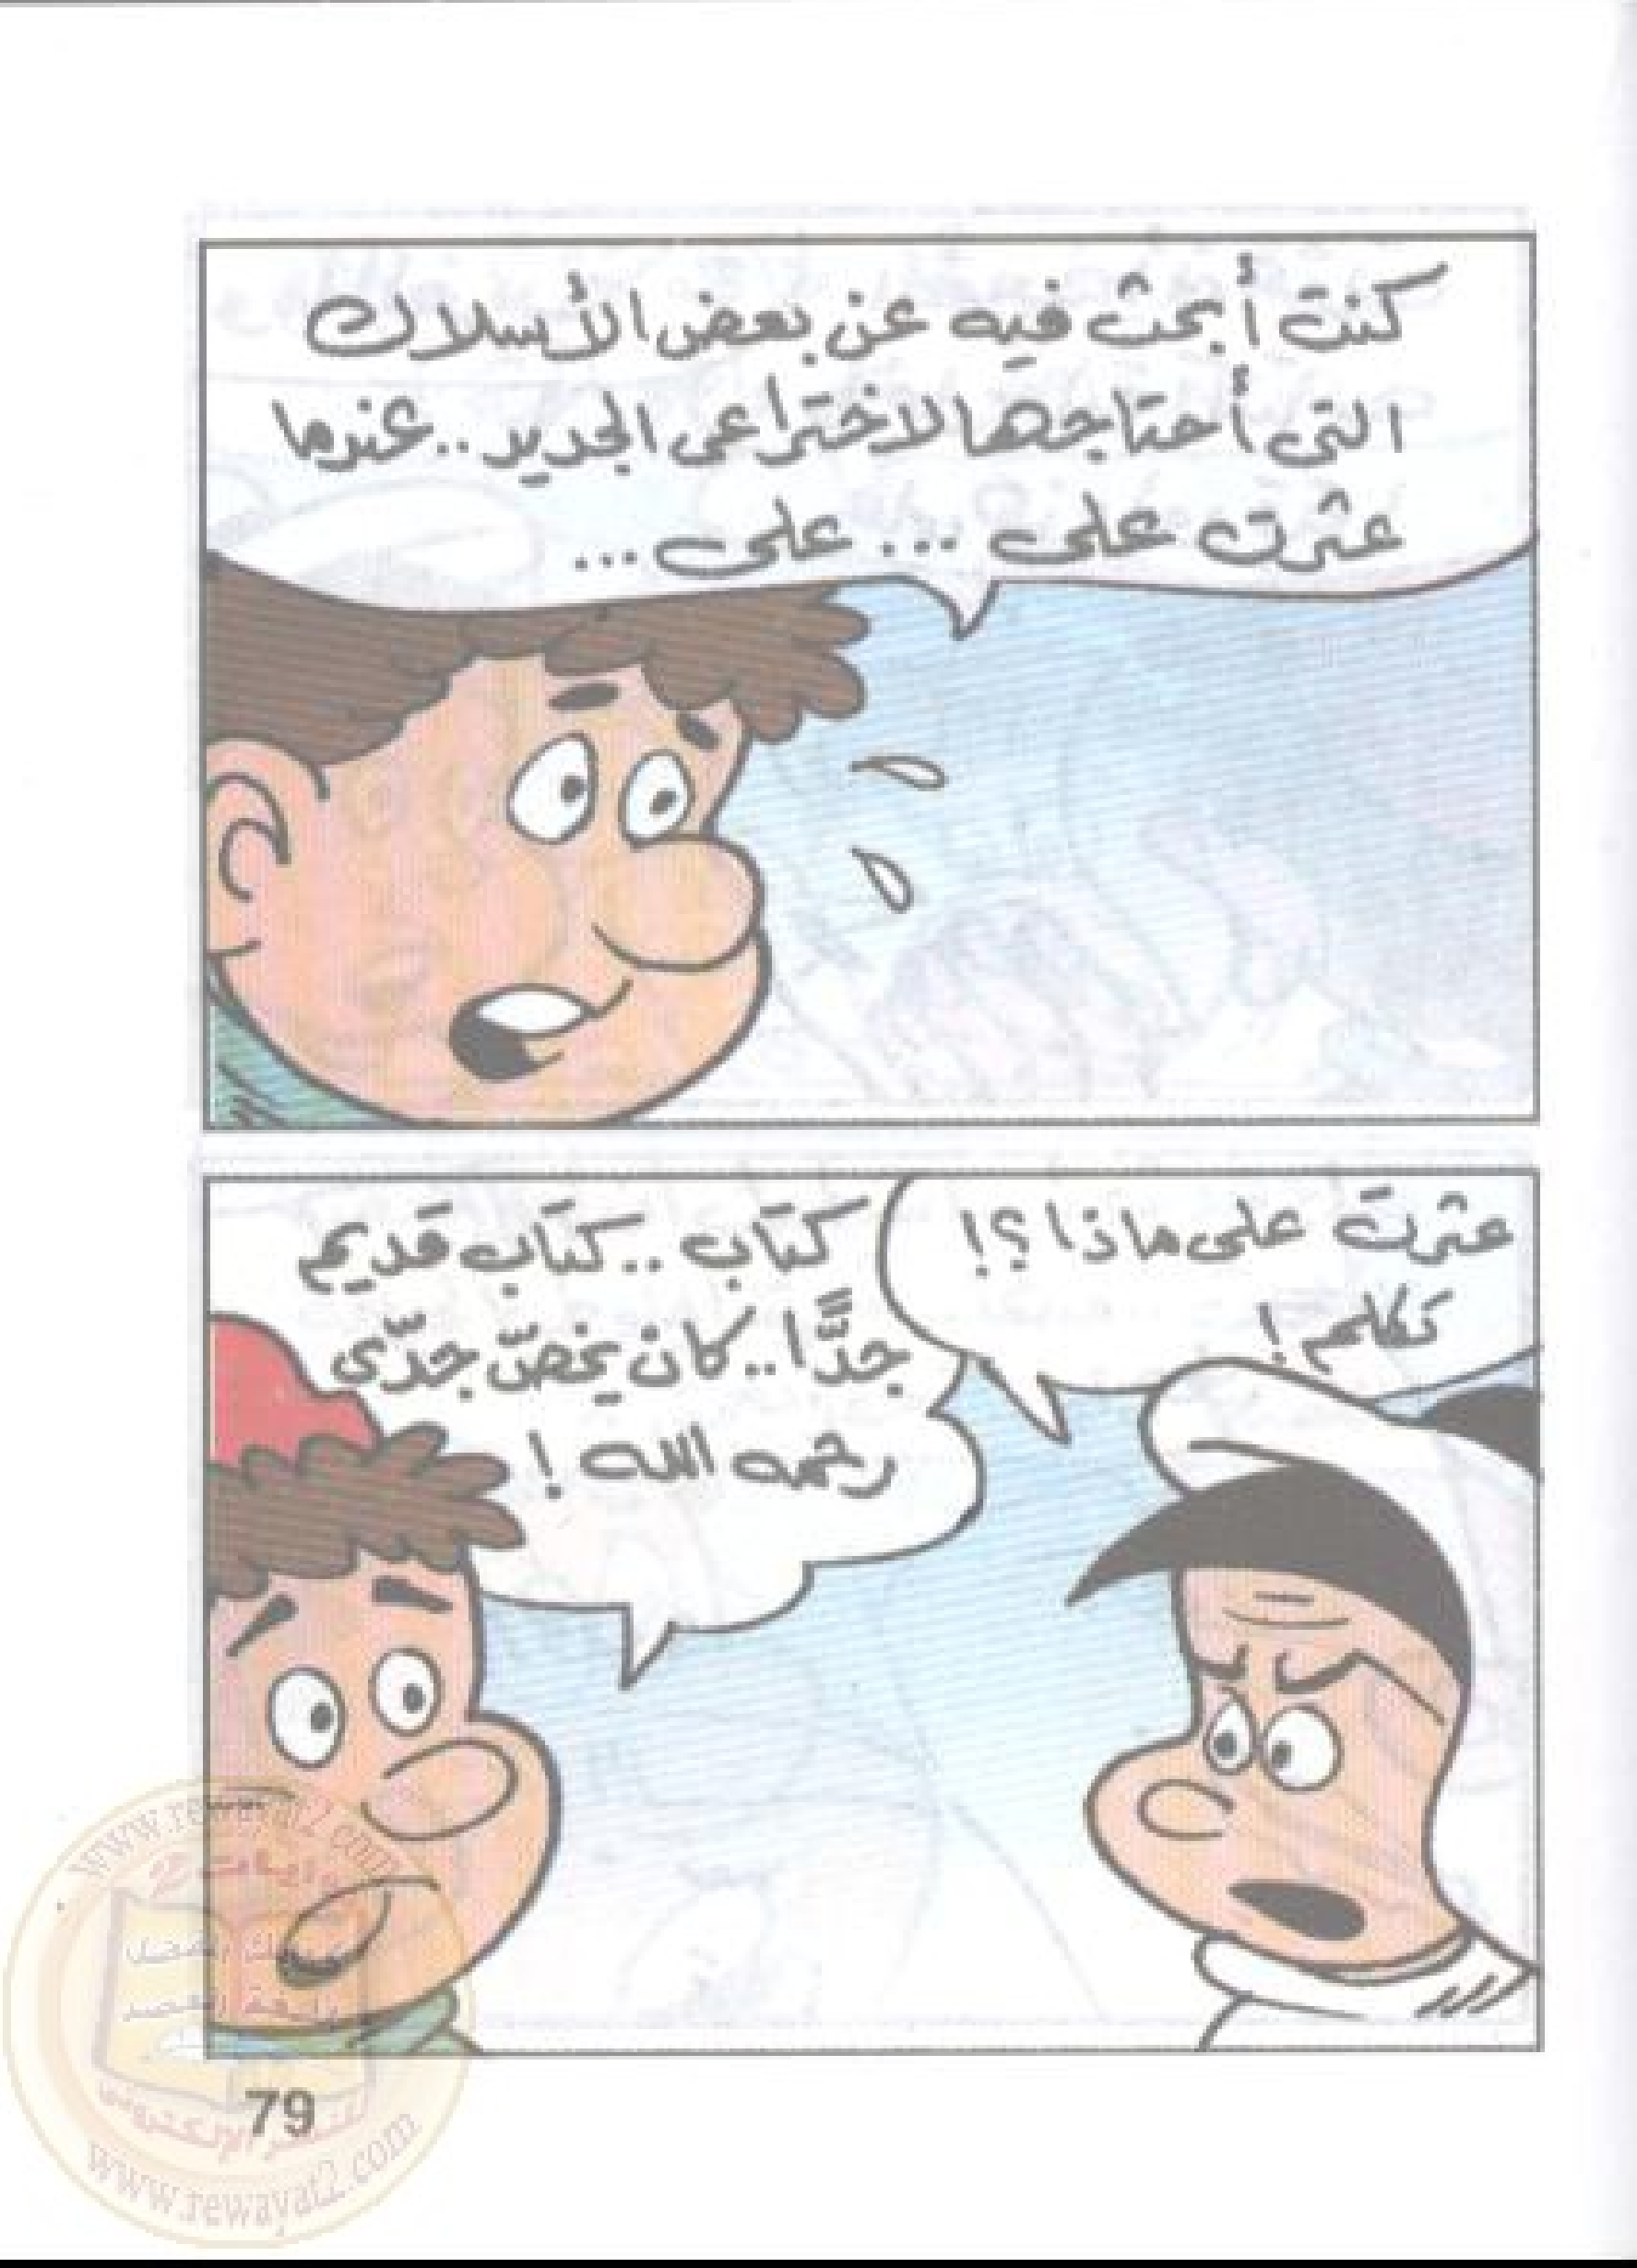 كنت أبحث فيه عن بعض الأسلاك
التى أحتاجها لاختراعى الجديد .. عندما
عثرت على ... على ...
عثرتَ على ماذا ؟!
تكلم !
كتاب .. كتاب قديم
جدًّا .. كان يخصّ جدّى
رحمه الله !
www.rewayat2.com
روايات 2
79
www.rewayat2.com